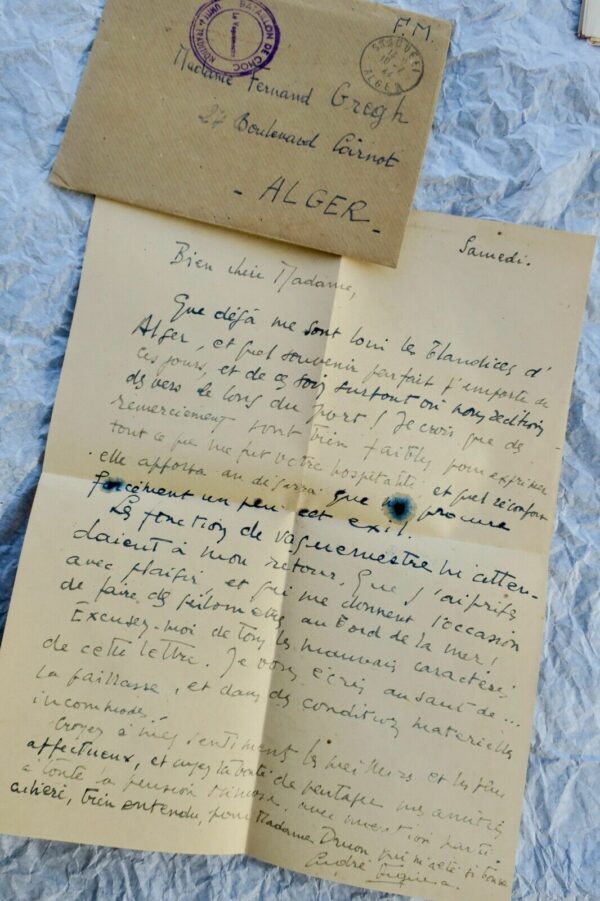 BATAILLON DE CHOC
Le Vaguemestre
F.M.
ALGER
Madame Fernand Gregh
27 Boulevard Carnot
- ALGER -
Samedi.
Bien chère Madame,
Que déjà me sont loin les blandices d'
Alger, et quel souvenir parfait j'emporte de
ces jours, et de ces soirs surtout où nous
des vers le long du port ! Je crois que des
remerciements sont bien faibles pour exprimer
tout ce que me fut votre hospitalité, et quel réconfort
elle apporta au que procure
forcément un peu cet exil.
La fonction de vaguemestre m'atten-
daient à mon retour, que j'ai prises
avec plaisir, et qui me donnent l'occasion
de faire des kilomètres au bord de la mer !
Excusez-moi de tous les mauvais caractères
de cette lettre. Je vous écris au saut de ...
la paillasse, et dans des conditions matérielles
incommodes.
Croyez à mes sentiments les meilleurs et les plus
affectueux, et ayez la bonté de partager mes amitiés
à toute la pension, avec mention parti-
culière, bien entendu, pour Madame Druon qui m'a été si bonne
André